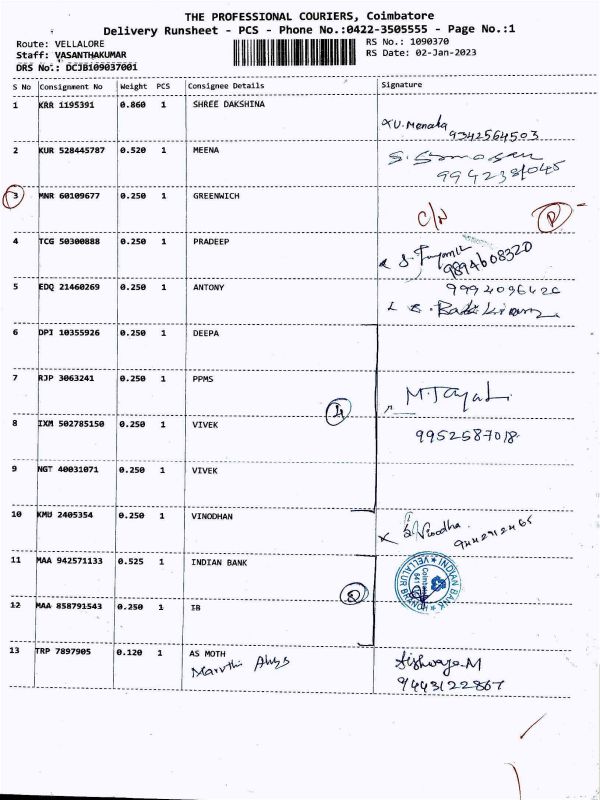 THE PROFESSIONAL COURIERS, Coimbatore
Delivery Runsheet - PCS - Phone No.:0422-3505555 - Page No.:1
Route: VELLALORE
RS No.: 1090370
Staff: VASANTHAKUMAR
RS Date: 02-Jan-2023
DRS No.: DCJB109037001
S No Consignment No Weight PCS Consignee Details Signature
1 KRR 1195391 0.860 1 SHREE DAKSHINA
U. Menaka
9342564503
2 KUR 528445787 0.520 1 MEENA
3 MNR 60109677 0.250 1 GREENWICH
C/N
4 TCG 50300888 0.250 1 PRADEEP
9894608320
5 EDQ 21460269 0.250 1 ANTONY
6 DPI 10355926 0.250 1 DEEPA
7 RJP 3063241 0.250 1 PPMS
8 IXM 502785150 0.250 1 VIVEK
9952587018
9 NGT 40031071 0.250 1 VIVEK
10 KMU 2405354 0.250 1 VINODHAN
Vinodha
9442912465
11 MAA 942571133 0.525 1 INDIAN BANK
INDIAN BANK
VELLALUR BRANCH
Coimbatore
12 MAA 858791543 0.250 1 IB
13 TRP 7897905 0.120 1 AS MOTH
Aishwarya.M
9443122867